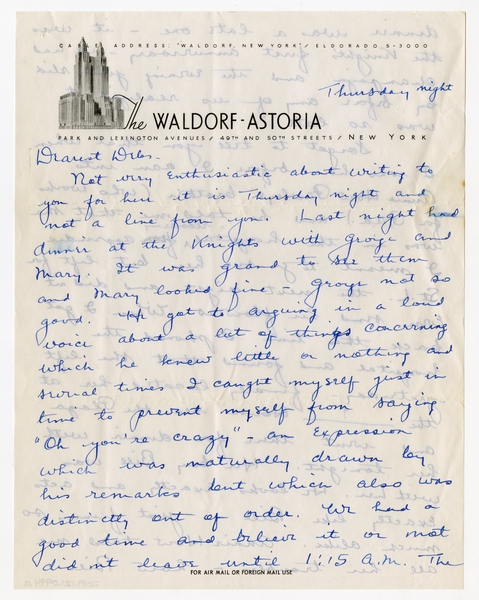 CABLE ADDRESS: "WALDORF, NEW YORK" / ELDORADO 5-3000
Thursday night
The WALDORF-ASTORIA
PARK AND LEXINGTON AVENUES / 49TH AND 50TH STREETS / NEW YORK
Dearest
Not very enthusiastic about writing to
you for here it is Thursday night and
not a line from you. Last night had
dinner at the Knights with George and
Mary. It was grand to see them
and Mary looked fine - George not so
good. He got to arguing in a loud
voice about a lot of things concerning
which he knew little or nothing and
several times I caught myself just in
time to prevent myself from saying
"Oh you're crazy" - an expression
which was naturally drawn by
his remarks but which also was
distinctly out of order. We had a
good time and believe it or not
didn't leave until 1:15 A.M. The
FOR AIR MAIL OR FOREIGN MAIL USE